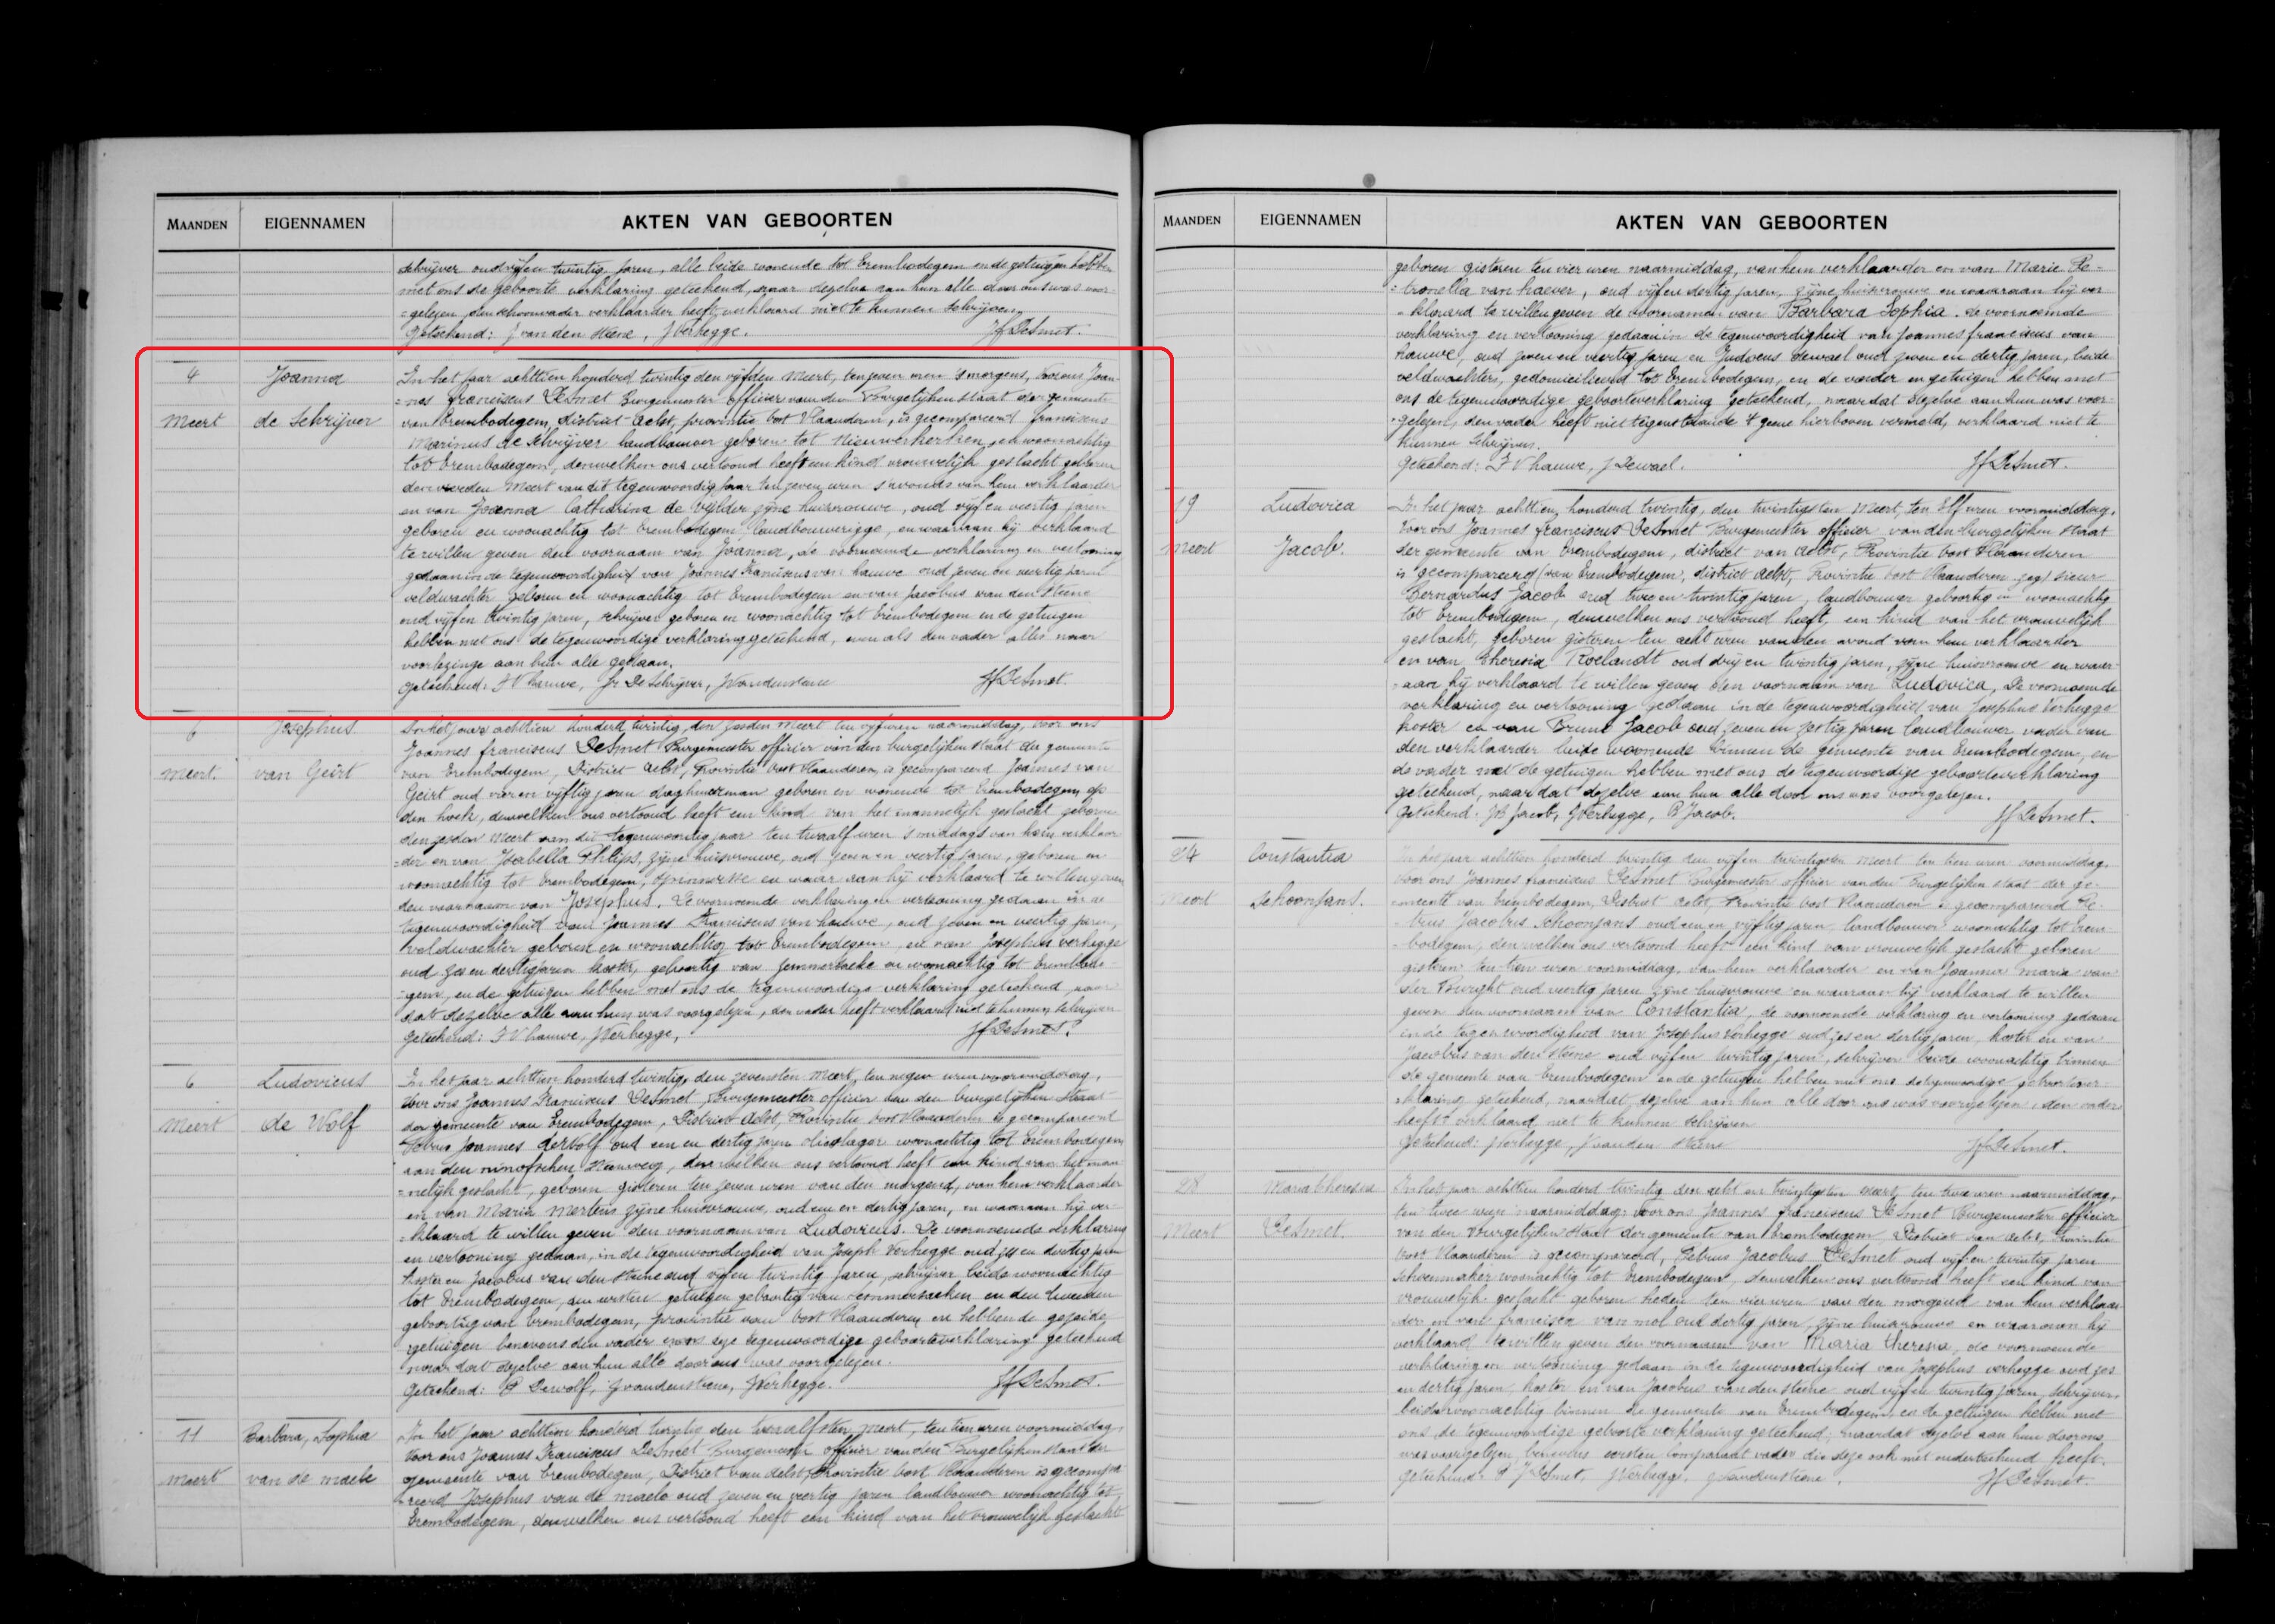 MAANDEN EIGENNAMEN AKTEN VAN GEBOORTEN
schrijver oud vijfen twintig jaren, alle beide wonende tot Erembodegem en de getuigen hebben
met ons de geboorte verklaring geteekend, naar dezelve aan hun alle door ons was voor-
=gelezen, den schoonvader verklaarder heeft verklaard niet te kunnen schrijven.
Geteekend: J van den Steene, J Verhegge. Jf DeSmet.
4 Joanna
Meert de Schrijver
In het jaar achttien honderd twintig den vijfden Meert, ten zeven uren 's morgens, voor ons Joan-
=nes franciscus DeSmet Burgemeester officier van den Burgelijken staat der gemeente
van Erembodegem, district Aelst, provintie Oost Vlaanderen, is gecompareerd franciscus
Marinus de Schrijver landbouwer geboren tot Nieuwerkerken, en woonachtig
tot Erembodegem, denwelken ons vertoond heeft een kind vrouwelijk geslacht geboren
den vierden Meert van dit tegenwoordig jaar ten zeven uren s'avonds van hem verklaarder
en van Joanna Catharina de Vijlder zijne huisvrouwe, oud vijf en veertig jaren
geboren en woonachtig tot Erembodegem, landbouwerigge, en waaraan hij verklaard
te willen geven den voornaam van Joanna, de voornoemde verklaring en vertooning
gedaan in de tegenwoordigheid van Joannes Franciscus van hauwe oud zeven en veertig jaren
veldwachter geboren en woonachtig tot Erembodegem en van Jacobus van den Steene
oud vijfen twintig jaren, schrijver geboren en woonachtig tot Erembodegem en de getuigen
hebben met ons de tegenwoordige verklaring geteekend, even als den vader alles naar
voorlezinge aan hun alle gedaan.
Geteekend: F V hauwe, fr De Schrijver, J Vandensteene Jf DeSmet.
6 Josephus
Meert. van Geirt
In het jaar achttien honderd twintig, den zesden Meert ten vijf uren naarmiddag, voor ons
Joannes franciscus DeSmet Burgemeester officier van den burgelijken staat der gemeente
van Erembodegem, District Aelst, Provintie Oost Vlaanderen, is gecompareerd Joannes van
Geirt oud vier en vijftig jaren daghuerman geboren en wonende tot Erembodegem op
den hoek, denwelken ons vertoond heeft een kind van het mannelijk geslacht geboren
den zesden Meert van dit tegenwoordig jaar ten twaalf uren s'middags van hem verklaar-
=der en van Isabella Philips, zijne huisvrouwe, oud zeven en veertig jaren, geboren en
woonachtig tot Erembodegem, spinnersse en waar aan hij verklaard te willen geven
den voornaam van Josephus. De voornoemde verklaring en vertooning gedaan in de
tegenwoordigheid van Joannes Franciscus van hauwe, oud zeven en veertig jaren,
veldwachter geboren en woonachtig tot Erembodegem, en van Josephus verhegge
oud zes en dertig jaren koster, geboortig van Zonnerbeke en woonachtig tot Erembode-
=gem, en de getuigen hebben met ons de tegenwoordige verklaring geteekend, naar
dat dezelve alle aan hun was voorgelezen, den vader heeft verklaard niet te kunnen schrijven
Geteekend: F V hauwe, J Verhegge, Jf DeSmet.
6 Ludovicus
Meert de Wolf
In het jaar achttien honderd twintig, den zevensten Meert, ten negen uren voormiddag,
voor ons Joannes Franciscus DeSmet, Burgemeester officier van den burgelijken staat
der gemeente van Erembodegem, District Aelst, Provintie Oost Vlaanderen is gecompareerd
Petrus Joannes deWolf oud een en dertig jaren olieslager woonachtig tot Erembodegem
aan den ninofschen steenweg, denwelken ons vertoond heeft een kind van het man-
=nelijk geslacht, geboren gisteren ten zeven uren van den morgend, van hem verklaarder
en van Maria Mertens zijne huisvrouwe, oud een en dertig jaren, en waaraan hij ver-
=klaard te willen geven den voornaam van Ludovicus. De voornoemde verklaring
en vertooning gedaan, in de tegenwoordigheid van Joseph Verhegge oud zes en dertig jaren
koster en Jacobus van den Steene oud vijfen twintig jaren, schrijver beide woonachtig
tot Erembodegem, den eersten getuigen geboortig van Zonnersaeken en den tweeden
geboortig van Erembodegem, provintie van Oost Vlaanderen en hebben de gezeide
getuigen benevens den vader met ons deze tegenwoordige geboorteverklaring geteekend
naar dat dezelve aan hun alle door ons was voorgelezen.
Geteekend: P Dewolf, J vandensteene, J Verhegge. Jf DeSmet.
11 Barbara, Sophia
Meert van de maele
In het jaar achttien honderd twintig den twaalfsten Meert, ten tien uren voormiddag,
voor ons Joannes Franciscus DeSmet Burgemeester officier van den Burgelijken staat der
gemeente van Erembodegem, District van Aelst, Provintie Oost Vlaanderen is gecompa-
=reerd Josephus van de maele oud zeven en veertig jaren landbouwer woonachtig tot
Erembodegem, denwelken ons vertoond heeft een kind van het vrouwelijk geslacht
MAANDEN EIGENNAMEN AKTEN VAN GEBOORTEN
geboren gisteren ten vier uren naarmiddag, van hem verklaarder en van Marie Pe-
=tronella van haever, oud vijfen dertig jaren, zijne huisvrouwe en waaraan hij ver-
=klaard te willen geven de voornamen van Barbara Sophia. de voornoemde
verklaring en vertooning gedaan in de tegenwoordigheid van Joannes franciscus van
hauwe, oud zeven en veertig jaren en Judocus dewael oud zeven en dertig jaren, beide
veldwachters, gedomicilieerd tot Erembodegem, en de vader en getuigen hebben met
ons de tegenwoordige geboorteverklaring geteekend, naar dat dezelve aan hun was voor-
=gelezen, den vader heeft niet tegenstaande 't geene hierboven vermeld, verklaard niet te
kunnen schrijven.
Geteekend: F V hauwe, J Dewael. Jf DeSmet.
19 Ludovica
Meert Jacob.
In het jaar achttien honderd twintig, den twintigsten Meert, ten Elf uren voormiddag,
voor ons Joannes franciscus DeSmet Burgemeester officier van den burgelijken staat
der gemeente van Erembodegem, district van Aelst, Provintie Oost Vlaanderen
is gecompareerd (van Erembodegem, district Aelst, Provintie Oost Vlaanderen sieur
Bernardus Jacob oud twee en twintig jaren, landbouwer geboortig en woonachtig
tot Erembodegem, denwelken ons vertoond heeft, een kind van het vrouwelijk
geslacht, geboren gisteren ten acht uren van den avond van hem verklaarder
en van Theresia Roelandt oud drij en twintig jaren, zijne huisvrouwe en waar-
=aan hij verklaard te willen geven den voornaam van Ludovica, De voornoemde
verklaring en vertooning gedaan in de tegenwoordigheid van Josephus Verhegge
koster en van Bruno Jacob oud zeven en zestig jaren landbouwer, vader van
den verklaarder beide woonende binnen de gemeente van Erembodegem, en
de vader met de getuigen hebben met ons de tegenwoordige geboorteverklaring
geteekend, naar dat dezelve aan hun alle door ons was voorgelezen.
Geteekend. JB Jacob, J Verhegge, B Jacob. Jf DeSmet.
24 Constantia
Meert Schoonjans.
In het jaar achttien honderd twintig den vijfen twintigsten Meert ten tien uren voormiddag,
voor ons Joannes franciscus DeSmet Burgemeester officier van den Burgelijken staat der ge-
=meente van Erembodegem, District Aelst, Provintie Oost Vlaanderen is gecompareerd Pe-
=trus Jacobus Schoonjans oud een en vijftig jaren landbouwer woonachtig tot Erem-
=bodegem, denwelken ons vertoond heeft een kind van vrouwelijk geslacht geboren
gisteren ten tien uren voormiddag, van hem verklaarder en van Joanna Maria van
der Burght oud veertig jaren zijne huisvrouwe en waaraan hij verklaard te willen
geven den voornaam van Constantia, de voornoemde verklaring en vertooning gedaan
in de tegenwoordigheid van Josephus Verhegge oud zes en dertig jaren, koster en van
Jacobus van den Steene oud vijfen twintig jaren, schrijver beide woonachtig binnen
de gemeente van Erembodegem en de getuigen hebben met ons de tegenwoordige geboortever-
=klaring geteekend, naar dat dezelve aan hun alle door ons was voorgelezen, den vader
heeft verklaard niet te kunnen schrijven
Geteekend: J Verhegge, J vanden Steene Jf DeSmet.
28 Maria Theresia
Meert DeSmet.
In het jaar achttien honderd twintig den acht en twintigsten Meert, ten twee uren naarmiddag,
ten twee uren naarmiddag, voor ons Joannes franciscus DeSmet Burgemeester officier
van den Burgelijken staat der gemeente van Erembodegem, District van Aelst, Provintie
Oost Vlaanderen is gecompareerd, Petrus Jacobus DeSmet oud vijfen twintig jaren
schoenmaker woonachtig tot Erembodegem, denwelken ons vertoond heeft een kind van
vrouwelijk geslacht geboren heden ten vier uren van den morgend van hem verklaar-
=der en van francisca van mol oud dertig jaren, zijne huisvrouwe en waaraan hij
verklaard te willen geven den voornaam van Maria Theresia, de voornoemde
verklaring en vertooning gedaan in de tegenwoordigheid van Josephus verhegge oud zes
en dertig jaren, koster en van Jacobus van den steene oud vijfen twintig jaren, schrijver
beide woonachtig binnen de gemeente van Erembodegem, en de getuigen hebben met
ons de tegenwoordige geboorte verklaring geteekend, naar dat dezelve aan hun door ons
was voorgelezen, benevens eersten Comparant vader die deze ook met onderteekend heeft.
Geteekend: P J DeSmet, J Verhegge, J Vandensteene. Jf DeSmet.